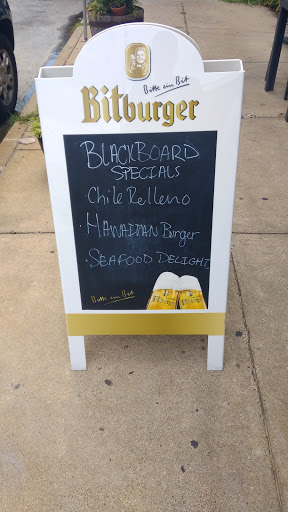 Bitte ein Bit
Bitburger
BLACKBOARD
SPECIALS
Chile Relleno
· HAWAIIAN Burger
· SEAFOOD DELIGHT
Bitte ein Bit